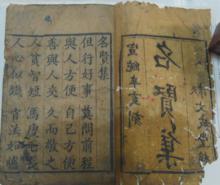 名賢集
宣統年夏刻
名賢集
但行好事 莫問前程
與人方便 自己方便
善與人交 久而敬之
人貧智短 馬瘦毛長
人心似鐵 官法如爐